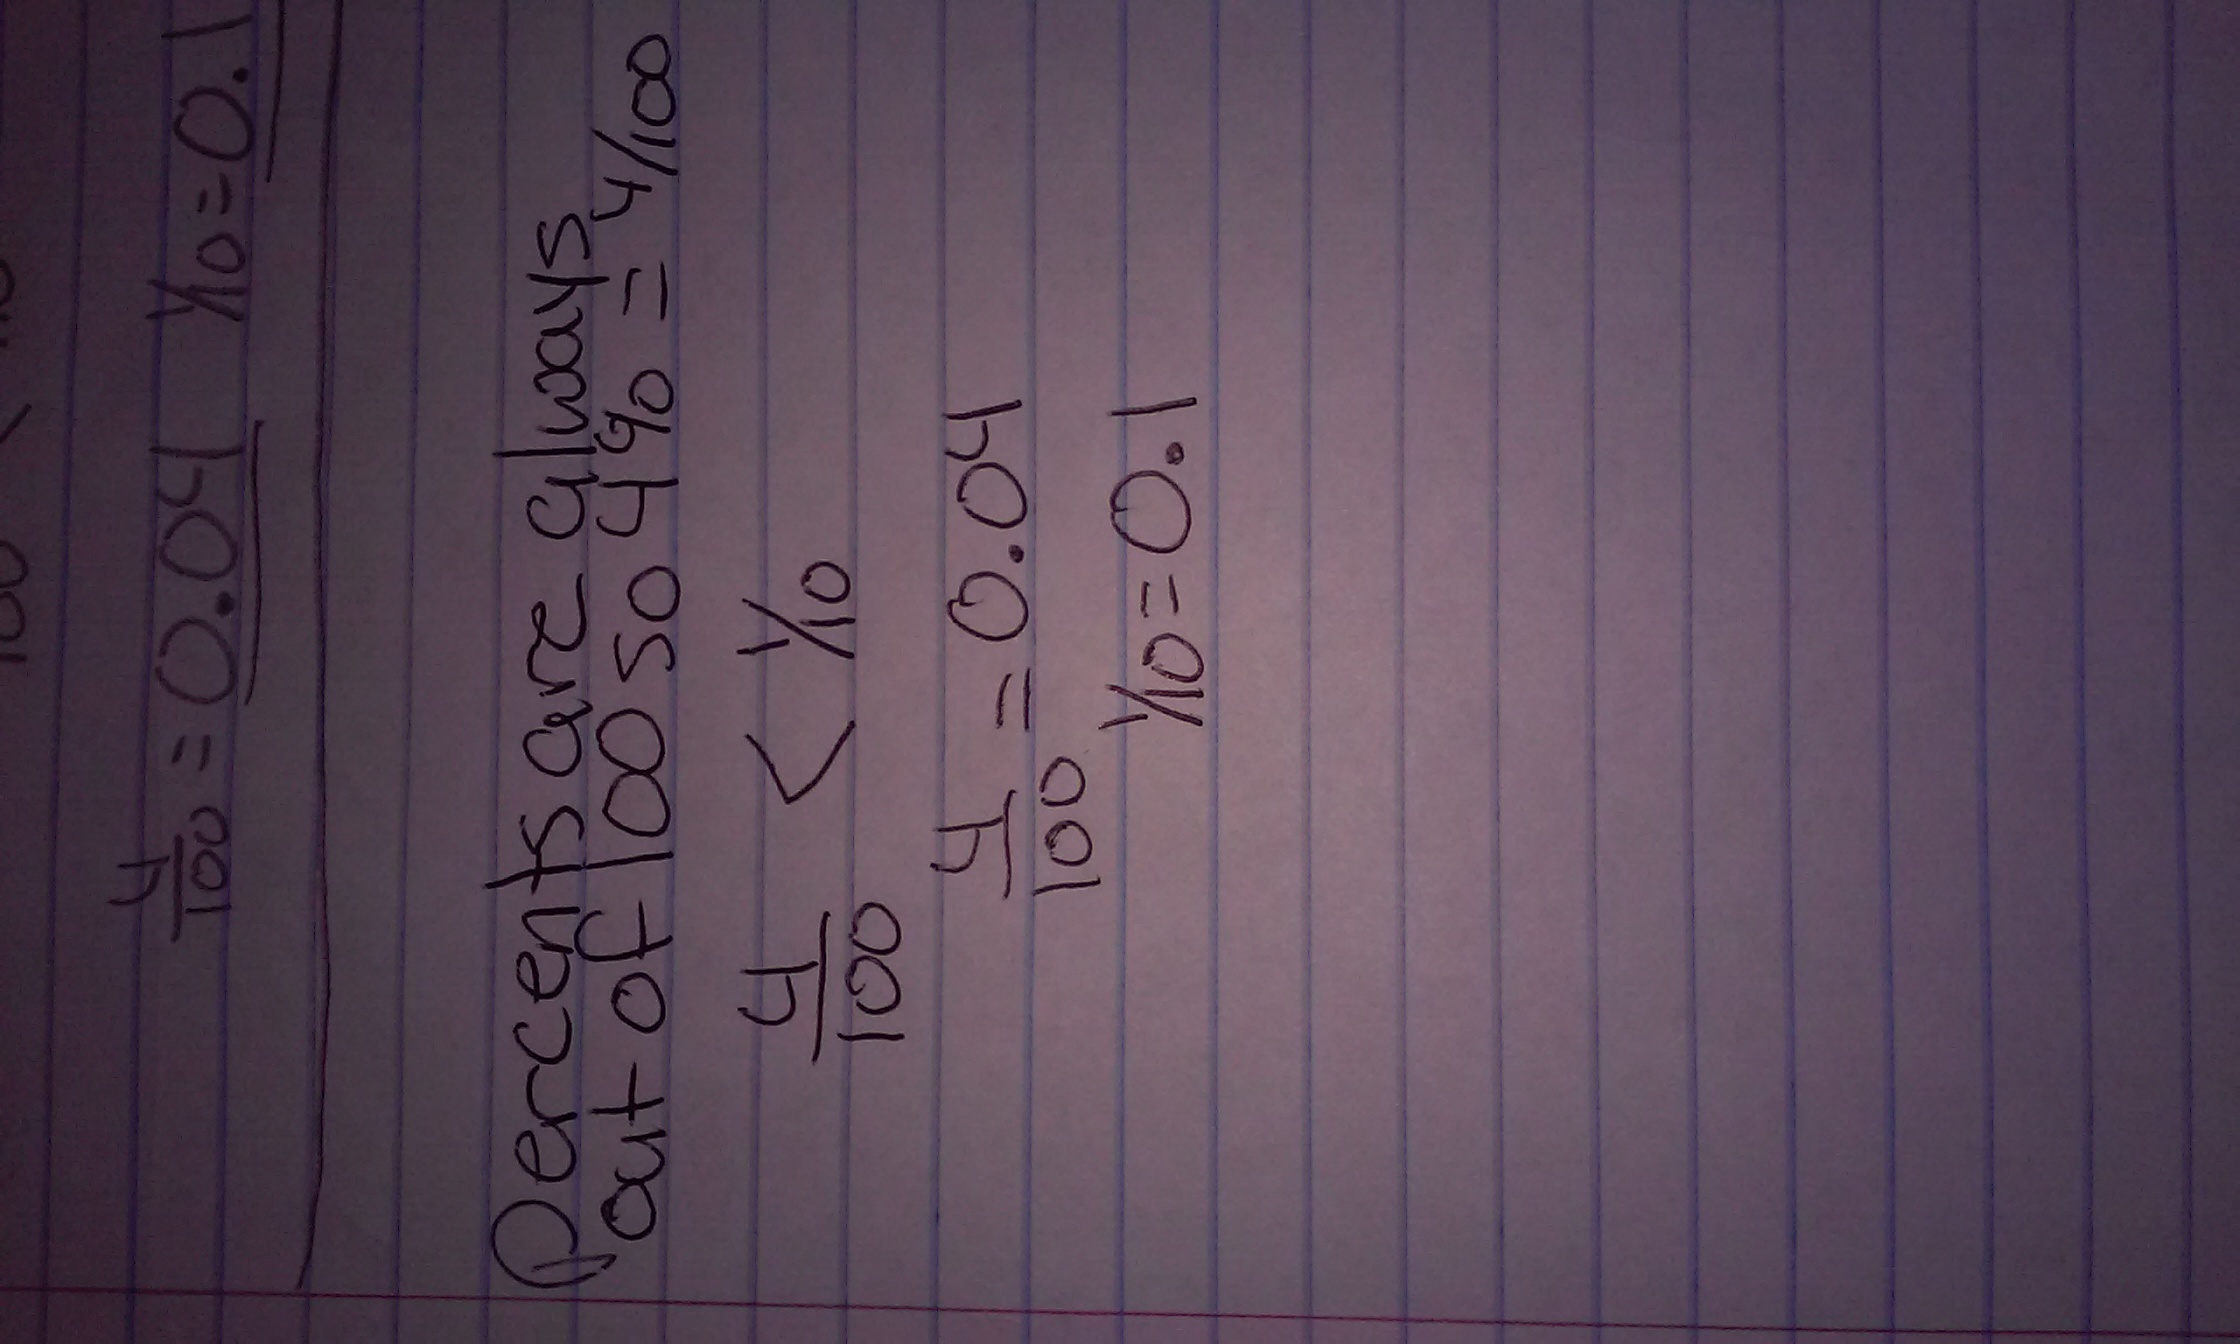 4/100 = 0.04 1/10 = 0.1
Percents are always
out of 100 so 4% = 4/100
4/100 < 1/10
4/100 = 0.04
1/10 = 0.1